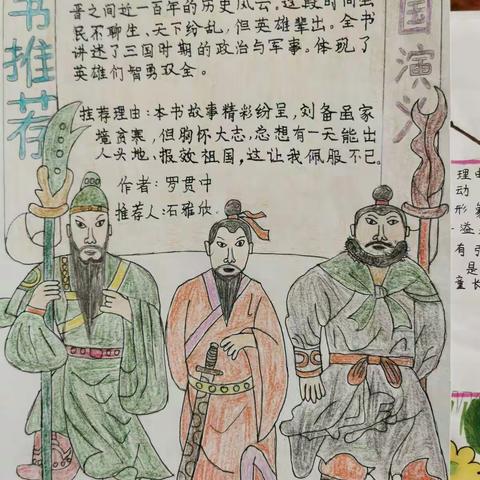 书推荐
国演义
晋之间近一百年的历史风云。这段时间生
民不聊生、天下纷乱，但英雄辈出。全书
讲述了三国时期的政治与军事。体现了
英雄们智勇双全。
推荐理由：本书故事精彩纷呈，刘备虽家
境贫寒，但胸怀大志，总想有一天能出
人头地，报效祖国，这让我佩服不已。
作者：罗贯中
推荐人：石雅欣
理由
动
形象
溢
有
是
童长